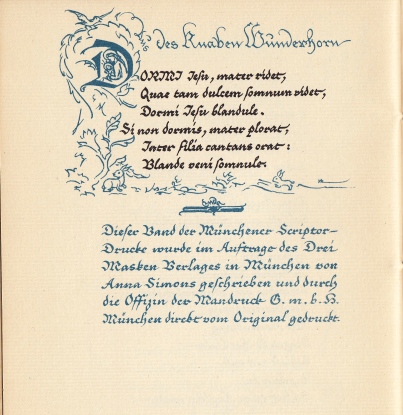 Aus des Knaben Wunderhorn
DORMI Jesu, mater ridet,
Quae tam dulcem somnum videt,
Dormi Jesu blandule.
Si non dormis, mater plorat,
Inter filia cantans orat:
Blande veni somnule.
Dieser Band der Münchener Scriptor-
Drucke wurde im Auftrage des Drei
Masken Verlages in München von
Anna Simons geschrieben und durch
die Offizin der Mandruck G.m.b.H.
München direkt vom Original gedruckt.